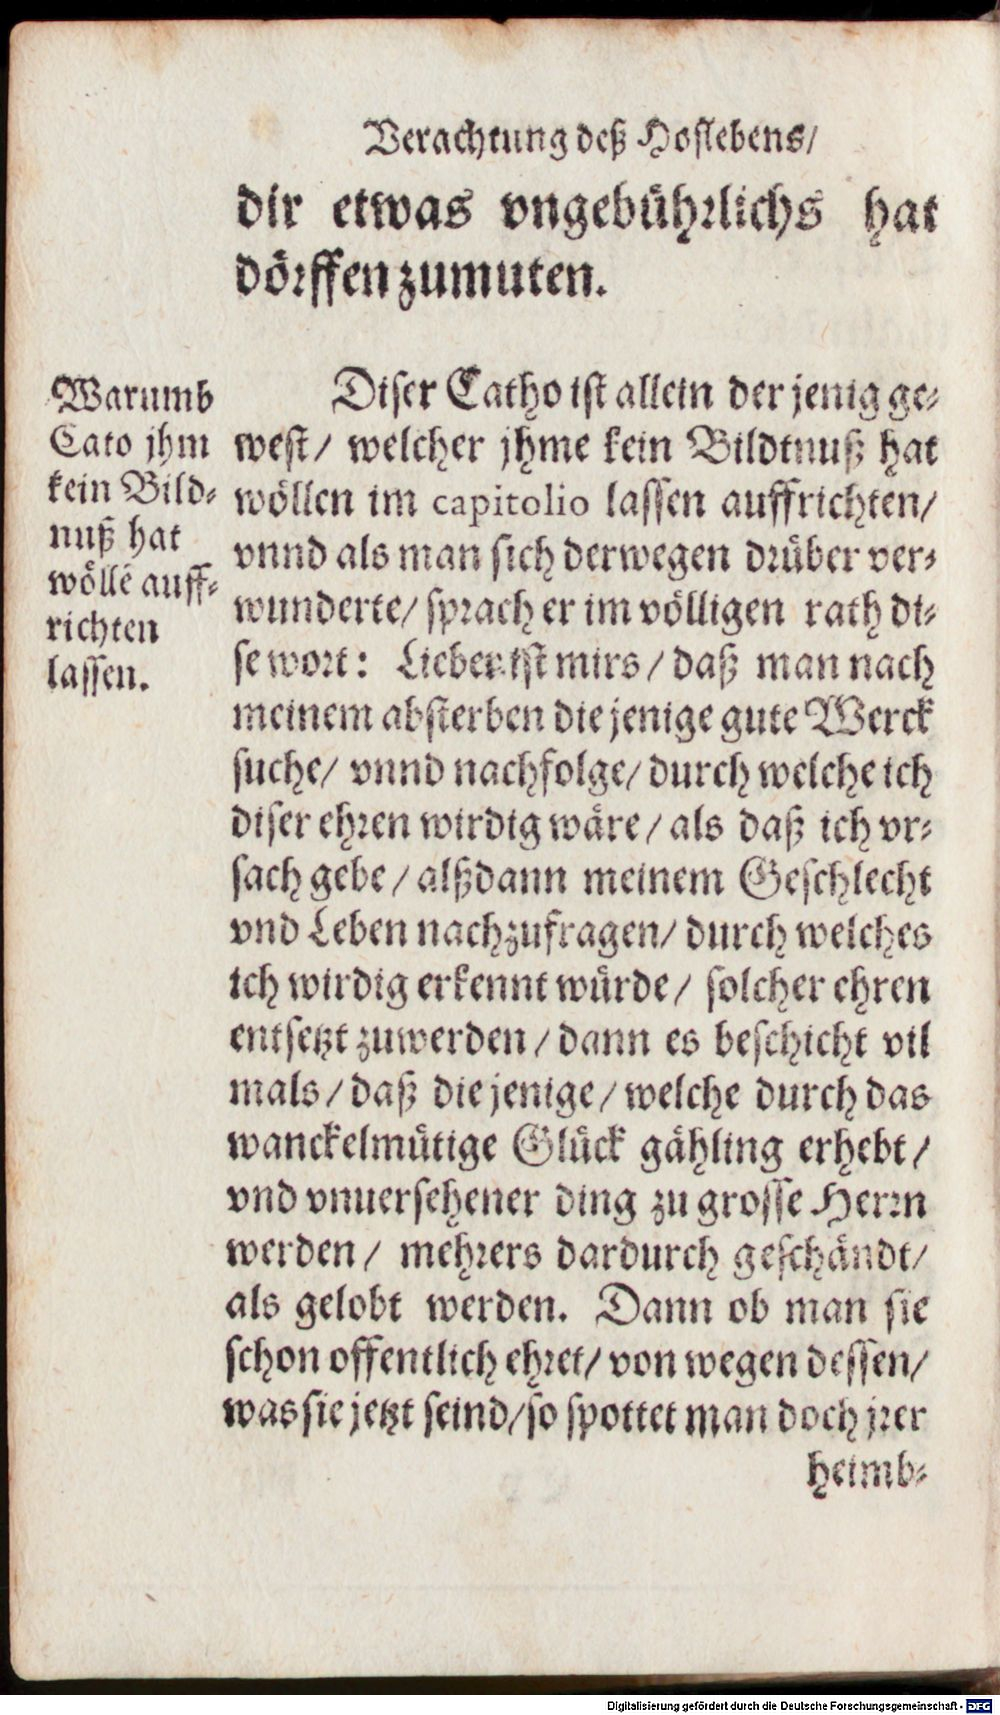 Verachtung deß Hoflebens/
dir etwas vngebührlichs hat
dörffen zumuten.
Warumb
Cato jhm
kein Bild⸗
nuß hat
wöllẽ auff⸗
richten
lassen.
Diser Catho ist allein der jenig ge⸗
west/ welcher jhme kein Bildtnuß hat
wöllen im capitolio lassen auffrichten/
vnnd als man sich derwegen drüber ver⸗
wunderte/ sprach er im völligen rath di⸗
se wort: Lieber ist mirs/ daß man nach
meinem absterben die jenige gute Werck
suche/ vnnd nachfolge/ durch welche ich
diser ehren wirdig wäre/ als daß ich vr⸗
sach gebe/ alßdann meinem Geschlecht
vnd Leben nachzufragen/ durch welches
ich wirdig erkennt würde/ solcher ehren
entsetzt zuwerden/ dann es beschicht vil
mals/ daß die jenige/ welche durch das
wanckelmütige Glück gähling erhebt/
vnd vnuersehener ding zu grosse Herrn
werden/ mehrers dardurch geschändt/
als gelobt werden. Dann ob man sie
schon offentlich ehret/ von wegen dessen/
was sie jetzt seind/ so spottet man doch jrer
heimb⸗
Digitalisierung gefördert durch die Deutsche Forschungsgemeinschaft - DFG